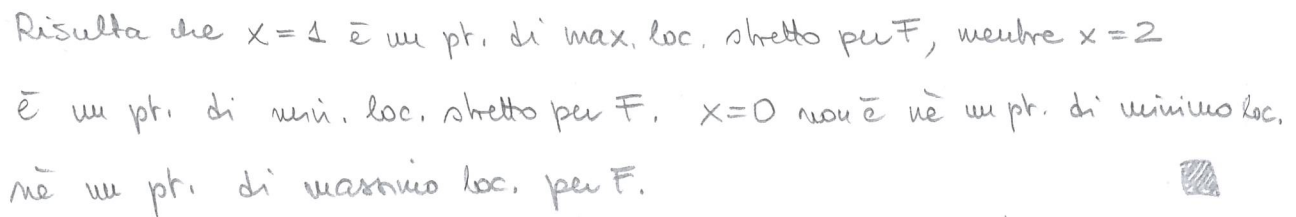 Risulta che x=1 è un pt. di max. loc. stretto per F, mentre x=2
è un pt. di min. loc. stretto per F. x=0 non è nè un pt. di minimo loc.
nè un pt. di massimo loc. per F.